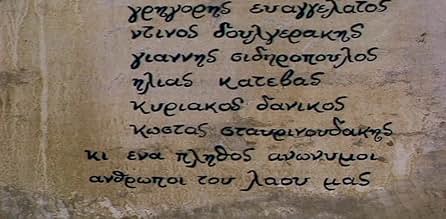 γρηγορης ευαγγελατος
ντινος δουλγερακης
γιαννης σιδηροπουλος
ηλιας κατεβας
κυριακος δανικος
κωστας σταυρινουδακης
κι ενα πληθος ανωνυμοι
ανθρωποι του λαου μας